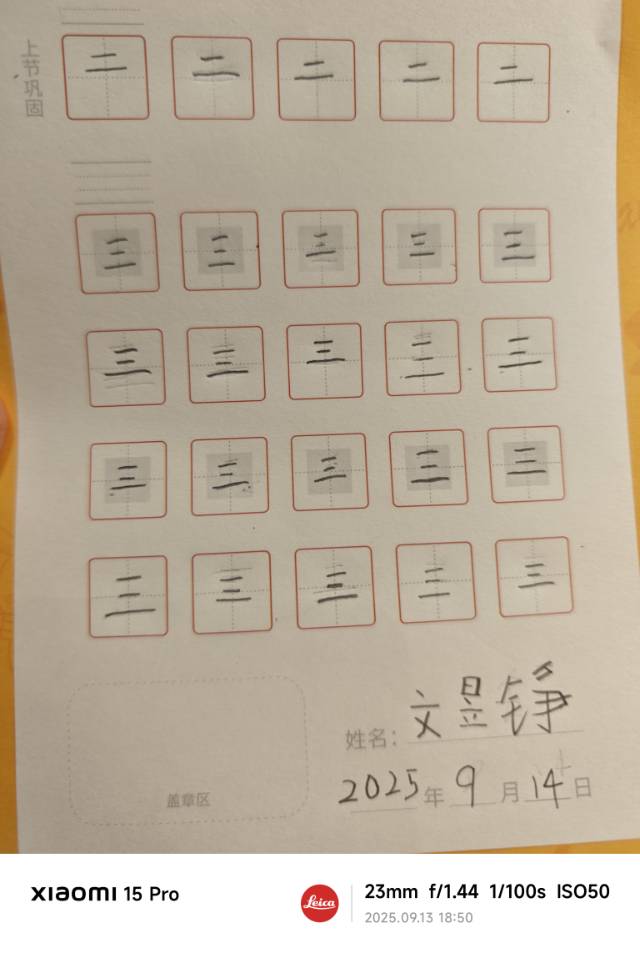 上节巩固
二 二 二 二 二
三 三 三 三 三
三 三 三 三 三
三 三 三 三 三
三 三 三 三 三
姓名：文昱铮
2025年9月14日
盖章区
XIAOMI 15 Pro
Leica
23mm f/1.44 1/100s ISO50
2025.09.13 18:50